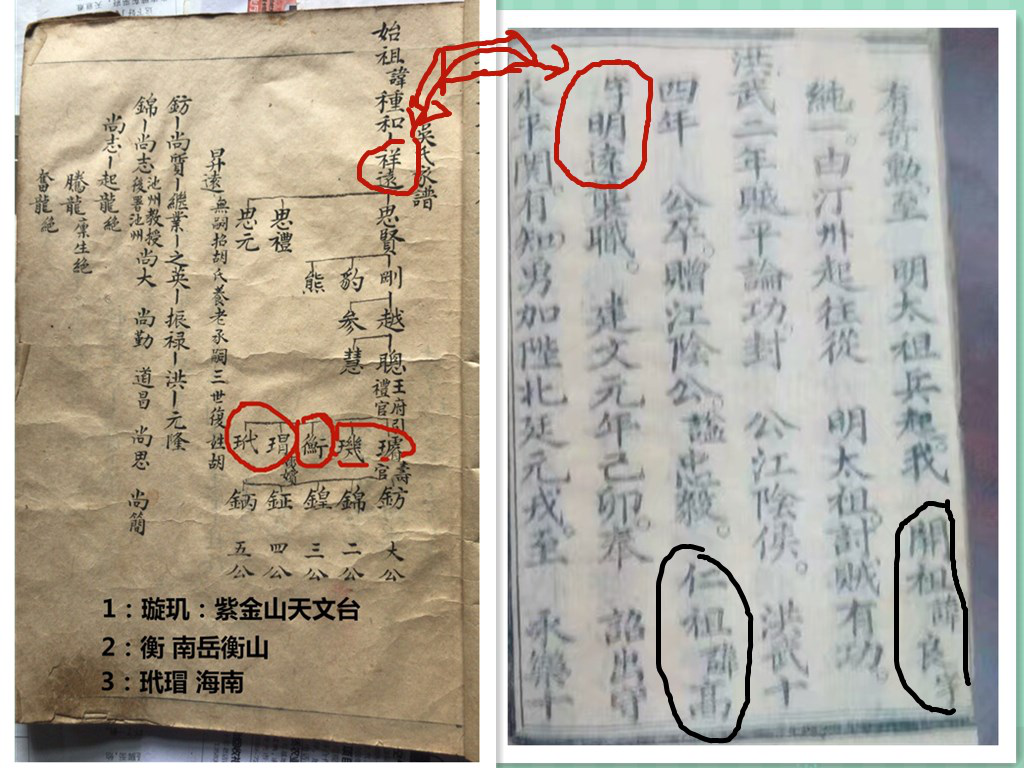 吳氏家譜
始祖諱種和—祥遠—思賢—剛—越—聰
王府引禮官
思禮
思元
豹
熊
參
慧
璣
衡
瑁
玳
鈁
錦
鍠
鉦
鈵
大公
二公
三公
四公
五公
昇遠 無嗣招胡氏養老承嗣三世復姓胡
鈁—尚賢—繼業—之英—振禄—洪—元隆
錦—尚志 池州教授後署池州 尚大 尚勤 道昌 尚思 尚簡
尚志—起龍絶
騰龍 稟生絶
奮龍絶
1：璇玑：紫金山天文台
2：衡 南岳衡山
3：玳瑁 海南
有奇勲。至 明太祖兵起。我 開祖諱良字
純一。由汀州起往從 明太祖。討賊有功。
洪武二年賊平論功。封 公江陰侯。 洪武十
四年 公卒。贈江陰公。謚忠毅。 仁祖諱高
字明遠襲職。建文元年己卯。奉 詔出守
永平関。有知勇加陞北廷元戎。至 永樂十